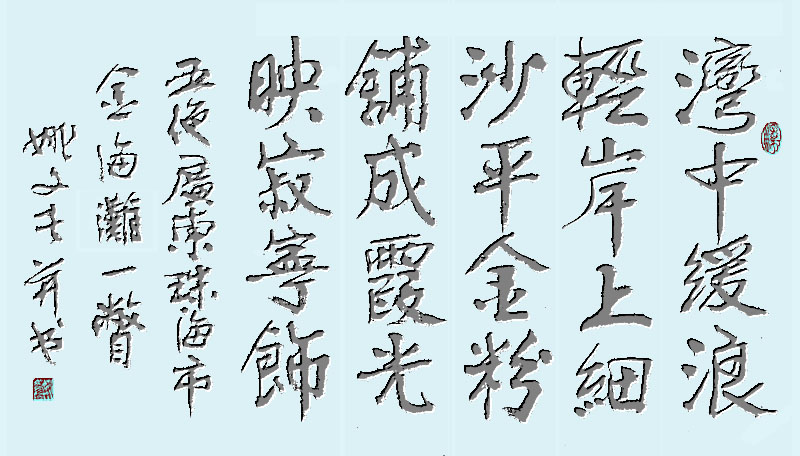 灣中緩浪
輕岸上細
沙平金粉
舖成霞光
映寂寧飾
五绝廣東珠海市
金海灘一瞥
姚文并书